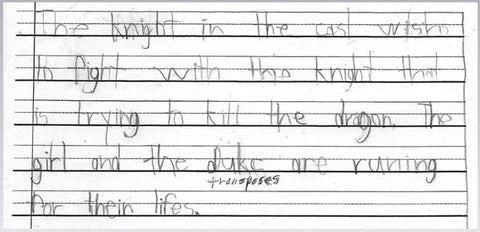 The knight in the cast wishs
to fight with the knight that
is trying to kill the dragon. The
girl and the duke are runing
transposes
for thein lifes.